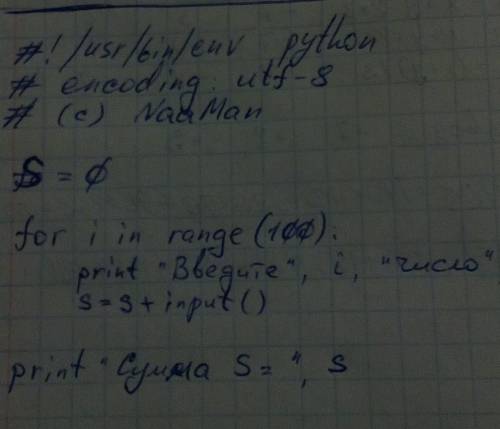 #!/usr/bin/env python
# encoding: utf-8
# (c) NaaMan
S = 0
for i in range (100):
print "Введите", i, "число"
s = s + input()
print "Сумма S = ", s